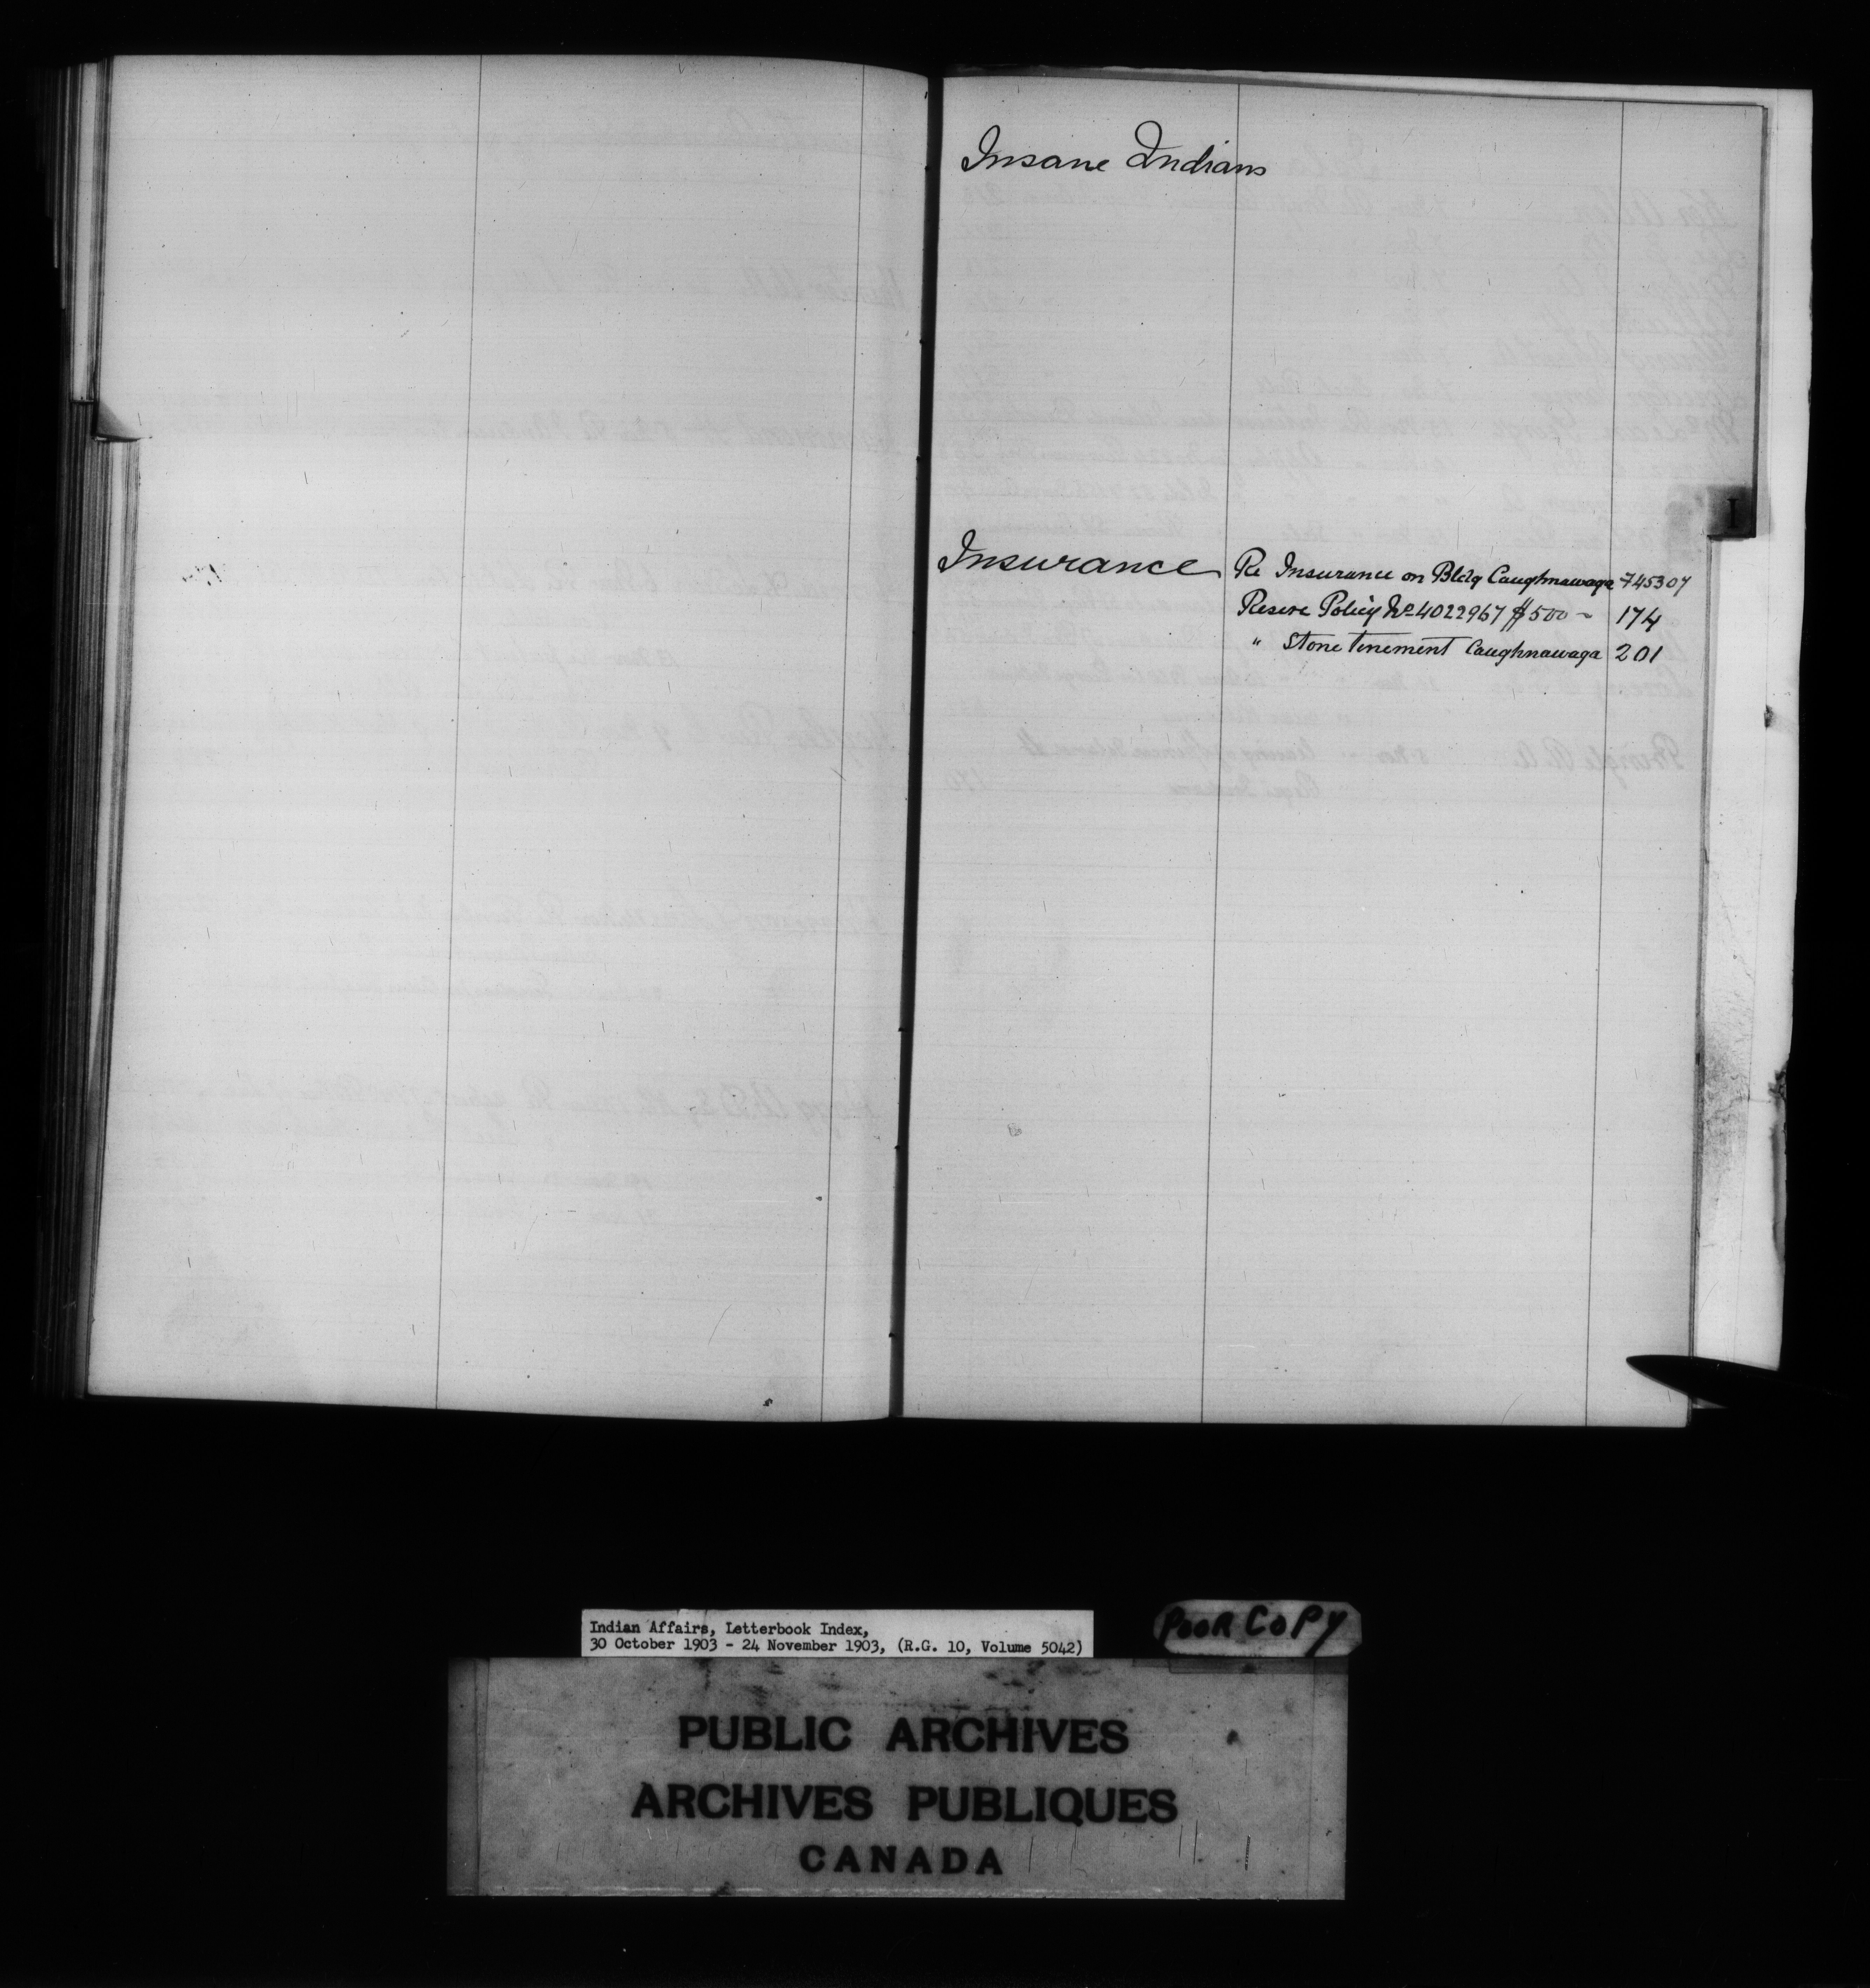 Insane Indians
I
Insurance Re Insurance on Bldg Caughnawaga 745307
Reserve Policy No 4022967 $500 - 174
" Stone tenement Caughnawaga 201
Indian Affairs, Letterbook Index,
30 October 1903 - 24 November 1903, (R.G. 10, Volume 5042)
POOR COPY
PUBLIC ARCHIVES
ARCHIVES PUBLIQUES
CANADA